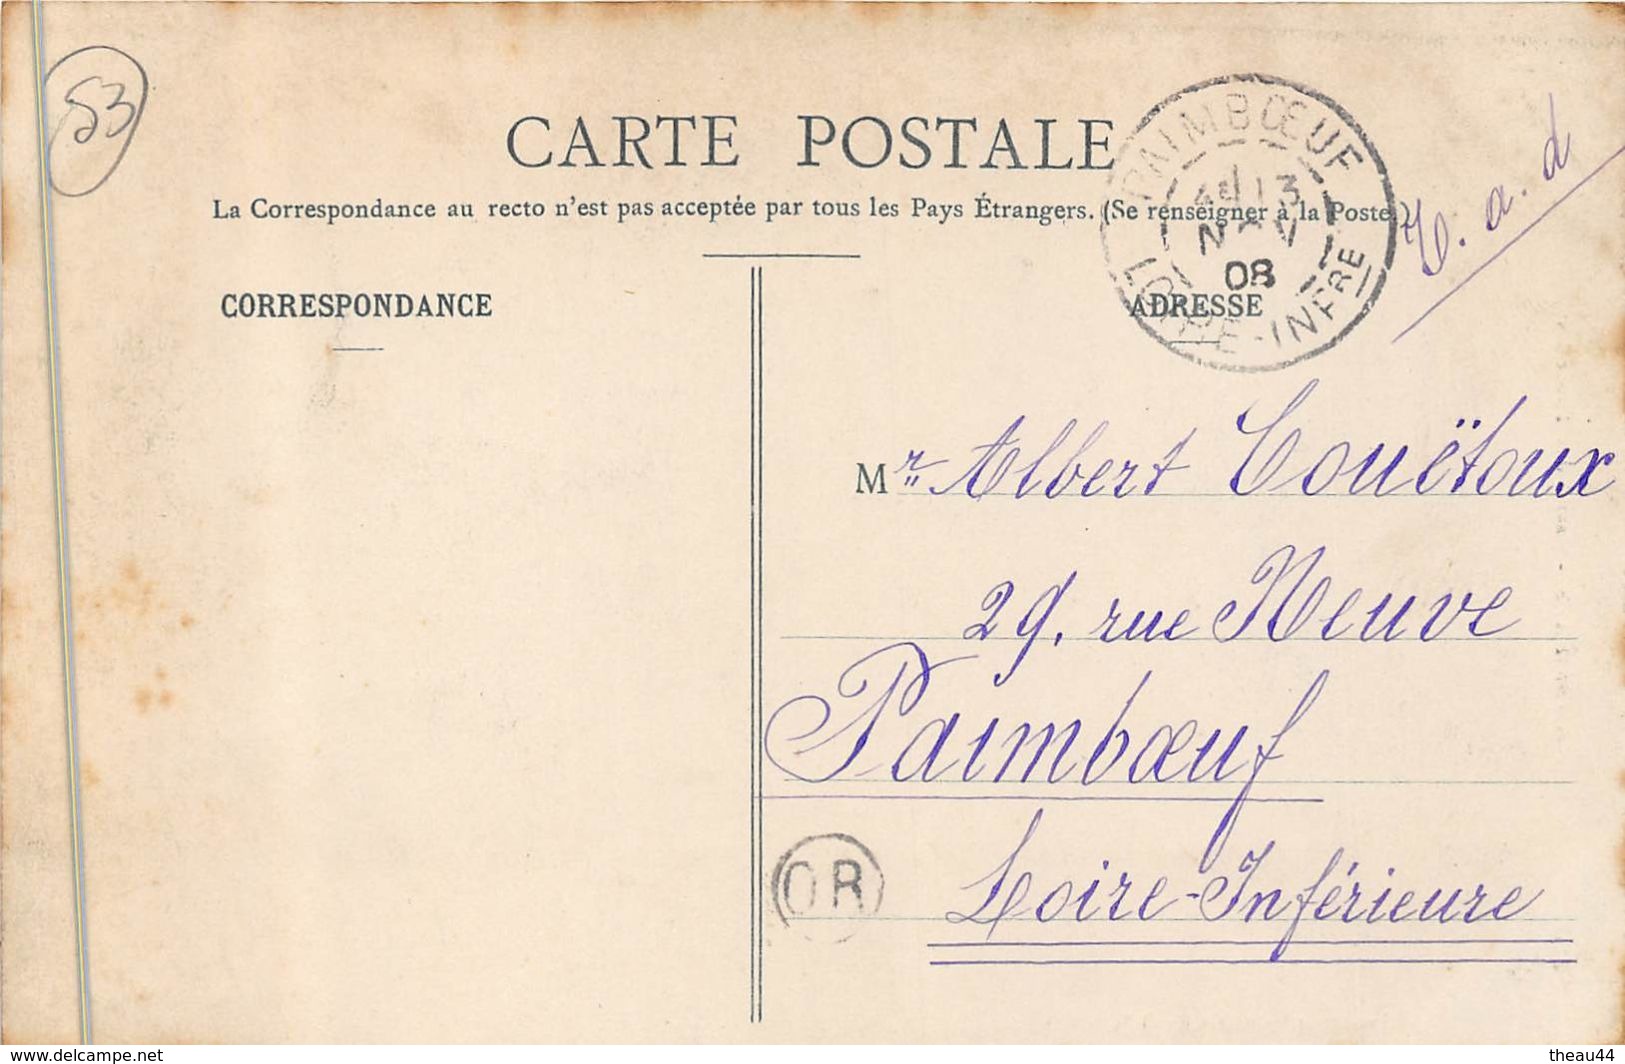 53
CARTE POSTALE
La Correspondance au recto n'est pas acceptée par tous les Pays Étrangers. (Se renseigner à la Poste.)
PAIMBŒUF
13
NOV
08
LOIRE-INFRE
a. d
CORRESPONDANCE
ADRESSE
Mr Albert Couëtoux
29. rue Neuve
Paimbœuf
OR
Loire-Inférieure
www.delcampe.net
theau44